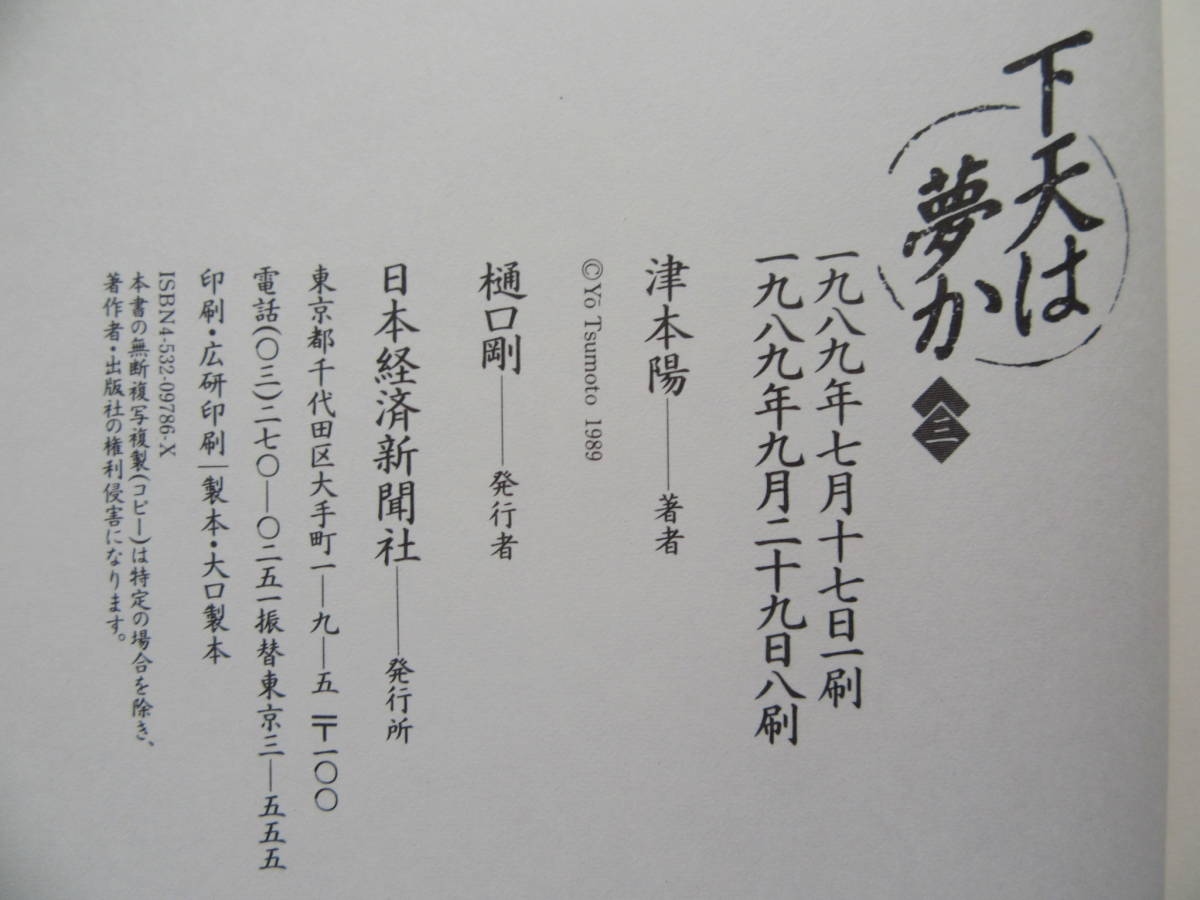 下天は
夢か
三
一九八九年七月十七日一刷
一九八九年九月二十九日八刷
津本陽――著者
©Yō Tsumoto 1989
樋口剛――発行者
日本経済新聞社――発行所
東京都千代田区大手町一―九―五 〒一〇〇
電話(〇三)二七〇―〇二五一振替東京三―五五五
印刷・広研印刷｜製本・大口製本
ISBN4-532-09786-X
本書の無断複写複製(コピー)は特定の場合を除き、
著作者・出版社の権利侵害になります。